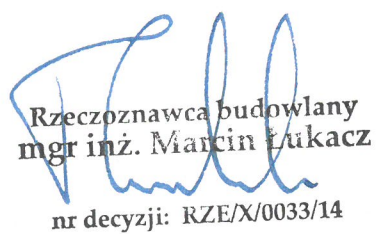 Rzeczoznawca budowlany
mgr inż. Marcin Łukacz
nr decyzji: RZE/X/0033/14